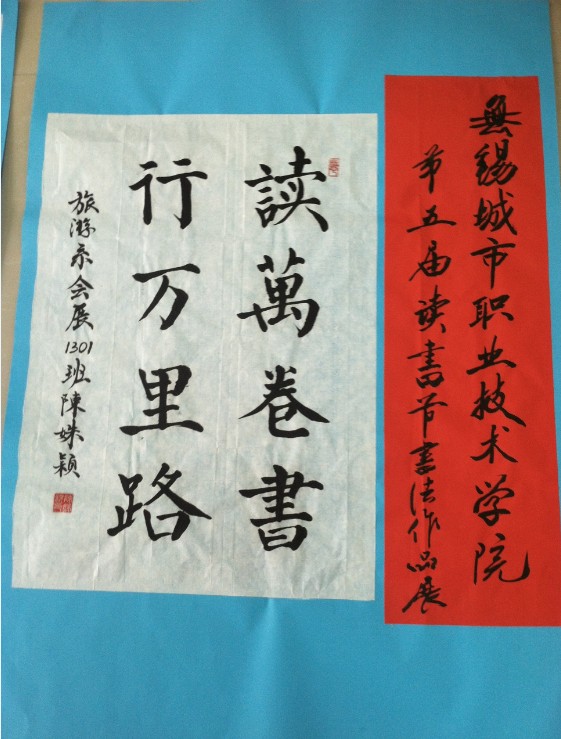 無锡城市职业技术学院
第五届读書节書法作品展
读萬卷書
行万里路
旅游系会展1301班陳姝颖